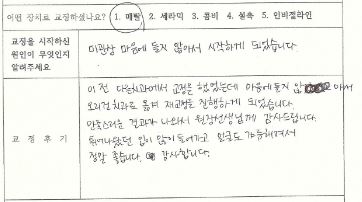 어떤 장치로 교정하셨나요? 1. 메탈 2. 세라믹 3. 콤비 4. 설측 5. 인비절라인
교정을 시작하신
원인이 무엇인지
알려주세요
미관상 마음에 들지 않아서 시작하게 되었습니다.
교 정 후 기
이 전 다른치과에서 교정을 했었는데 마음에 들지 않아서
오리진치과로 옮겨 재교정을 진행하게 되었습니다.
만족스러운 결과가 나와서 원장선생님께 감사드립니다.
튀어나왔던 입이 많이 들어가고 안쪽도 가능해져서
정말 좋습니다. 감사합니다.